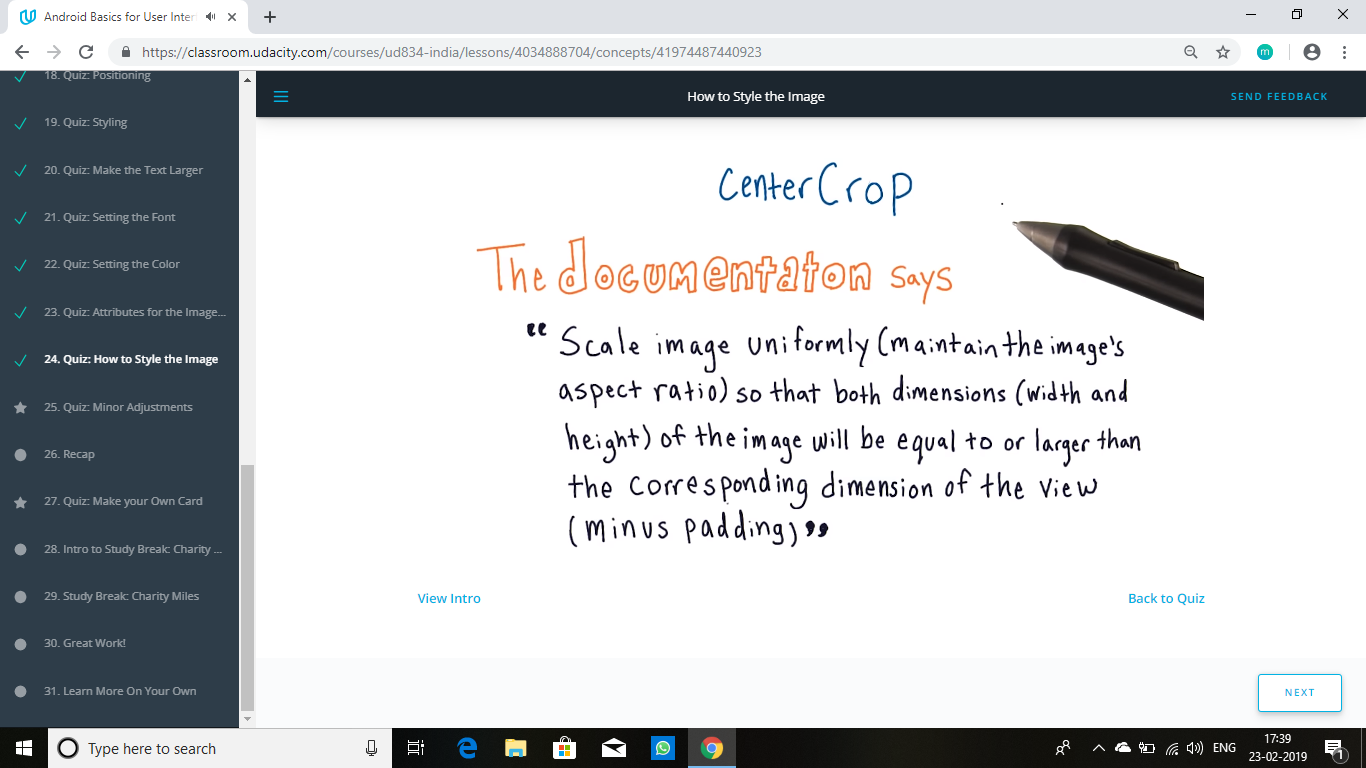 Android Basics for User Inter
https://classroom.udacity.com/courses/ud834-india/lessons/4034888704/concepts/41974487440923
m
18. Quiz: Positioning
19. Quiz: Styling
20. Quiz: Make the Text Larger
21. Quiz: Setting the Font
22. Quiz: Setting the Color
23. Quiz: Attributes for the Image...
24. Quiz: How to Style the Image
25. Quiz: Minor Adjustments
26. Recap
27. Quiz: Make your Own Card
28. Intro to Study Break: Charity ...
29. Study Break: Charity Miles
30. Great Work!
31. Learn More On Your Own
How to Style the Image
SEND FEEDBACK
CenterCrop
The documentaton says
“Scale image uniformly (maintain the image's
aspect ratio) so that both dimensions (width and
height) of the image will be equal to or larger than
the corresponding dimension of the view
(minus padding)”
View Intro
Back to Quiz
NEXT
Type here to search
ENG
17:39
23-02-2019
1